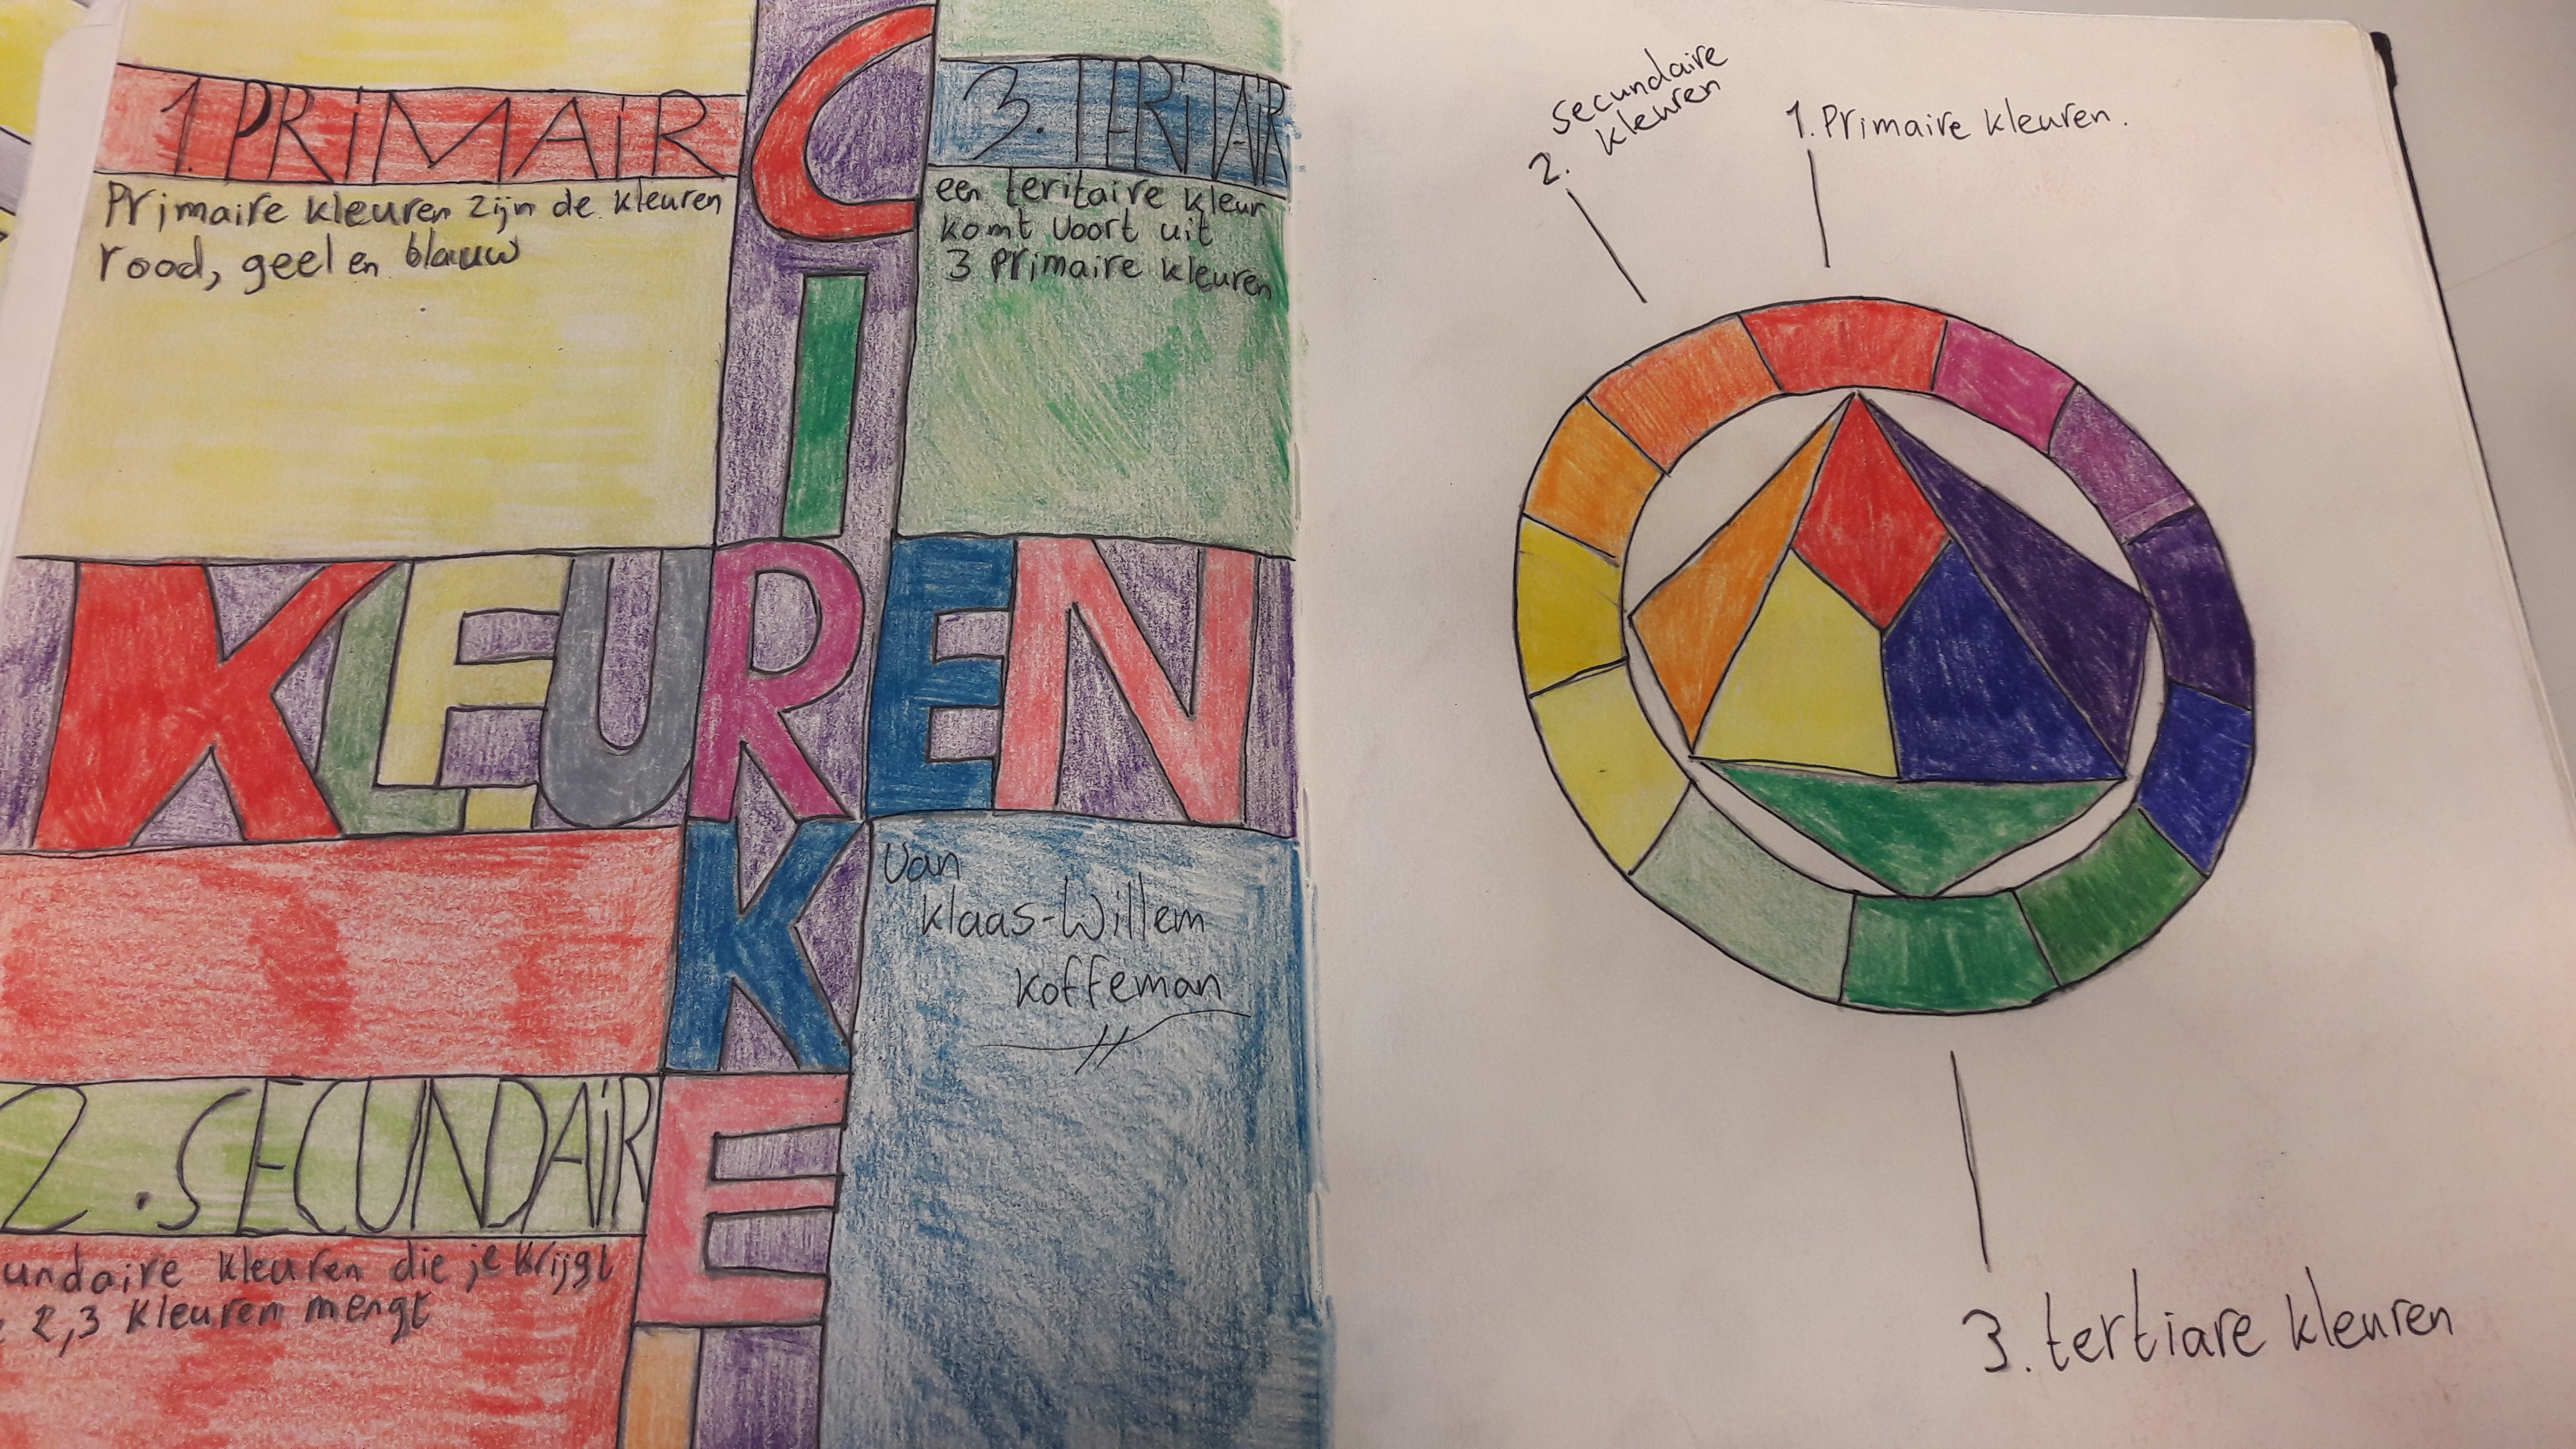 1. PRiMAiR
Primaire kleuren zijn de kleuren
rood, geel en blauw
3. TERiTAiR
een teritaire kleur
komt voort uit
3 primaire kleuren
CIRKEL
KLEUREN
van
Klaas-Willem
Koffeman
2. SECUNDAiR
undaire kleuren die je krijgt
2,3 kleuren mengt
secundaire
2. kleuren
1. Primaire kleuren.
3. tertiare kleuren